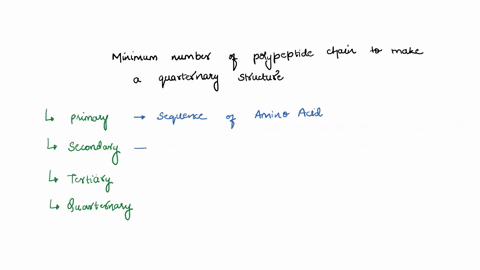 Minimum number of polypeptide chain to make
a quarternary structure?
↳ Primary → Sequence of Amino Acid
↳ Secondary —
↳ Tertiary
↳ Quarternary